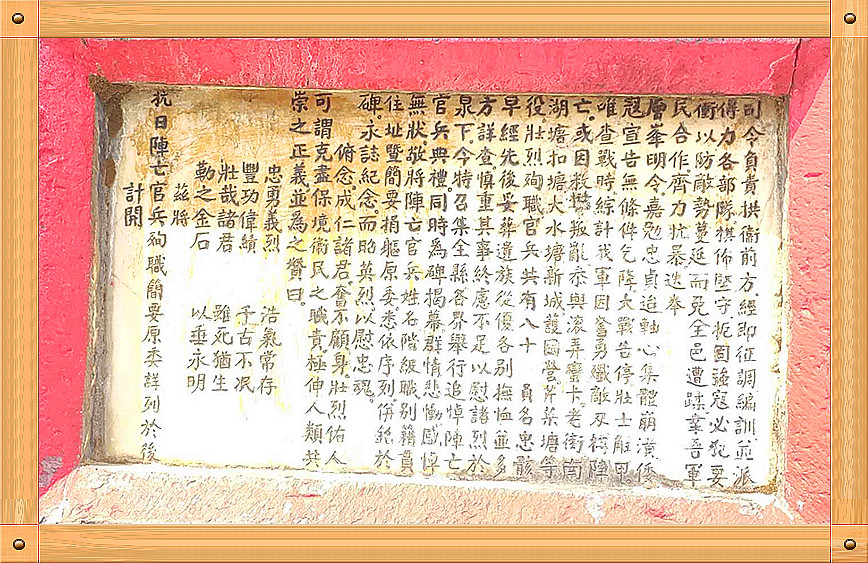 司令負責拱衞前方經即征調編訓並派
得力各部隊棋佈堅守扼固強寇必犯要
衝以防敵勢蔓延而免全邑遭蹂辜吾軍
民合作齊力抗暴迭奉
層峯明令嘉勉忠貞迨軸心集體崩潰倭
寇宣告無條件乞降大戰告停壯士解甲
唯查戰時綜計我軍因奮勇殲敵及禦陣
亡或因救叛亂叅與滾弄蠻卡老街南
湖塘扣塘大水塘新城護國營芹菜塘等
役壯烈殉職官兵共有八十 員名忠骸
早經先後妥葬遺族從優各別撫恤並多
方詳查慎重其事終慮不足以慰諸烈於
泉下今特召集全縣各界舉行追悼陣亡
官兵典禮同時為碑揭幕群情悲慟感悼
無狀敬將陣亡官兵姓名階級職別籍貫
住址暨簡要捐軀原委悉依序列併銘於
碑永誌紀念而昭英烈以慰忠魂
俯念成仁諸君奮不顧身壯烈佑人
可謂克盡保境衞民之職責極伸人類共
崇之正義並為之贊曰
忠勇義烈 浩氣常存
豐功偉績 千古不泯
壯哉諸君 雖死猶生
勒之金石 以垂永明
茲將
抗日陣亡官兵殉職簡要原委詳列於後
計開